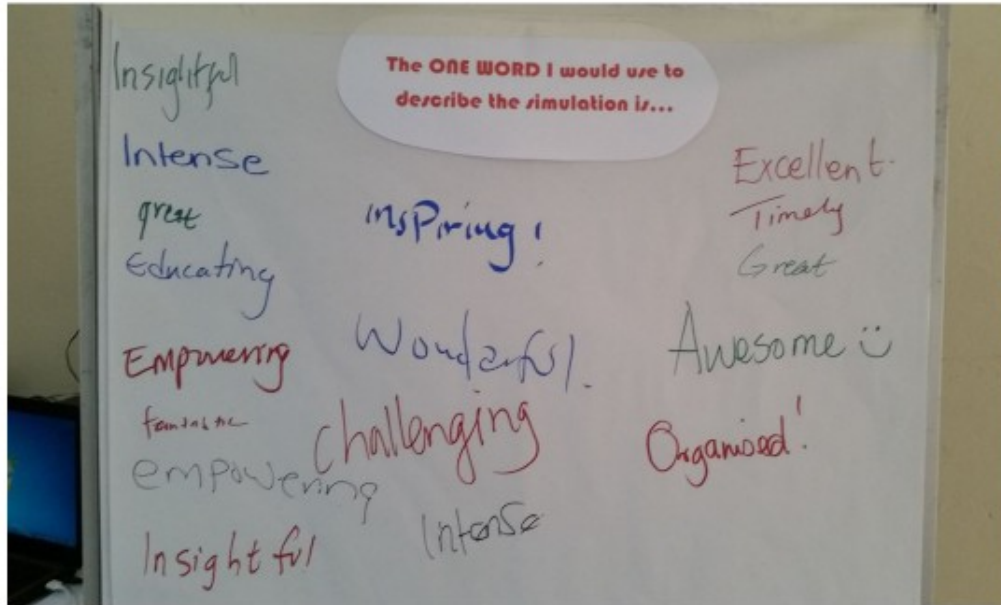 The ONE WORD I would use to
describe the simulation is...
Insightful
Intense
great
Educating
Empowering
fantastic
empowering
Insightful
inspiring!
Wonderful.
challenging
Intense
Excellent.
Timely
Great
Awesome
Organised!